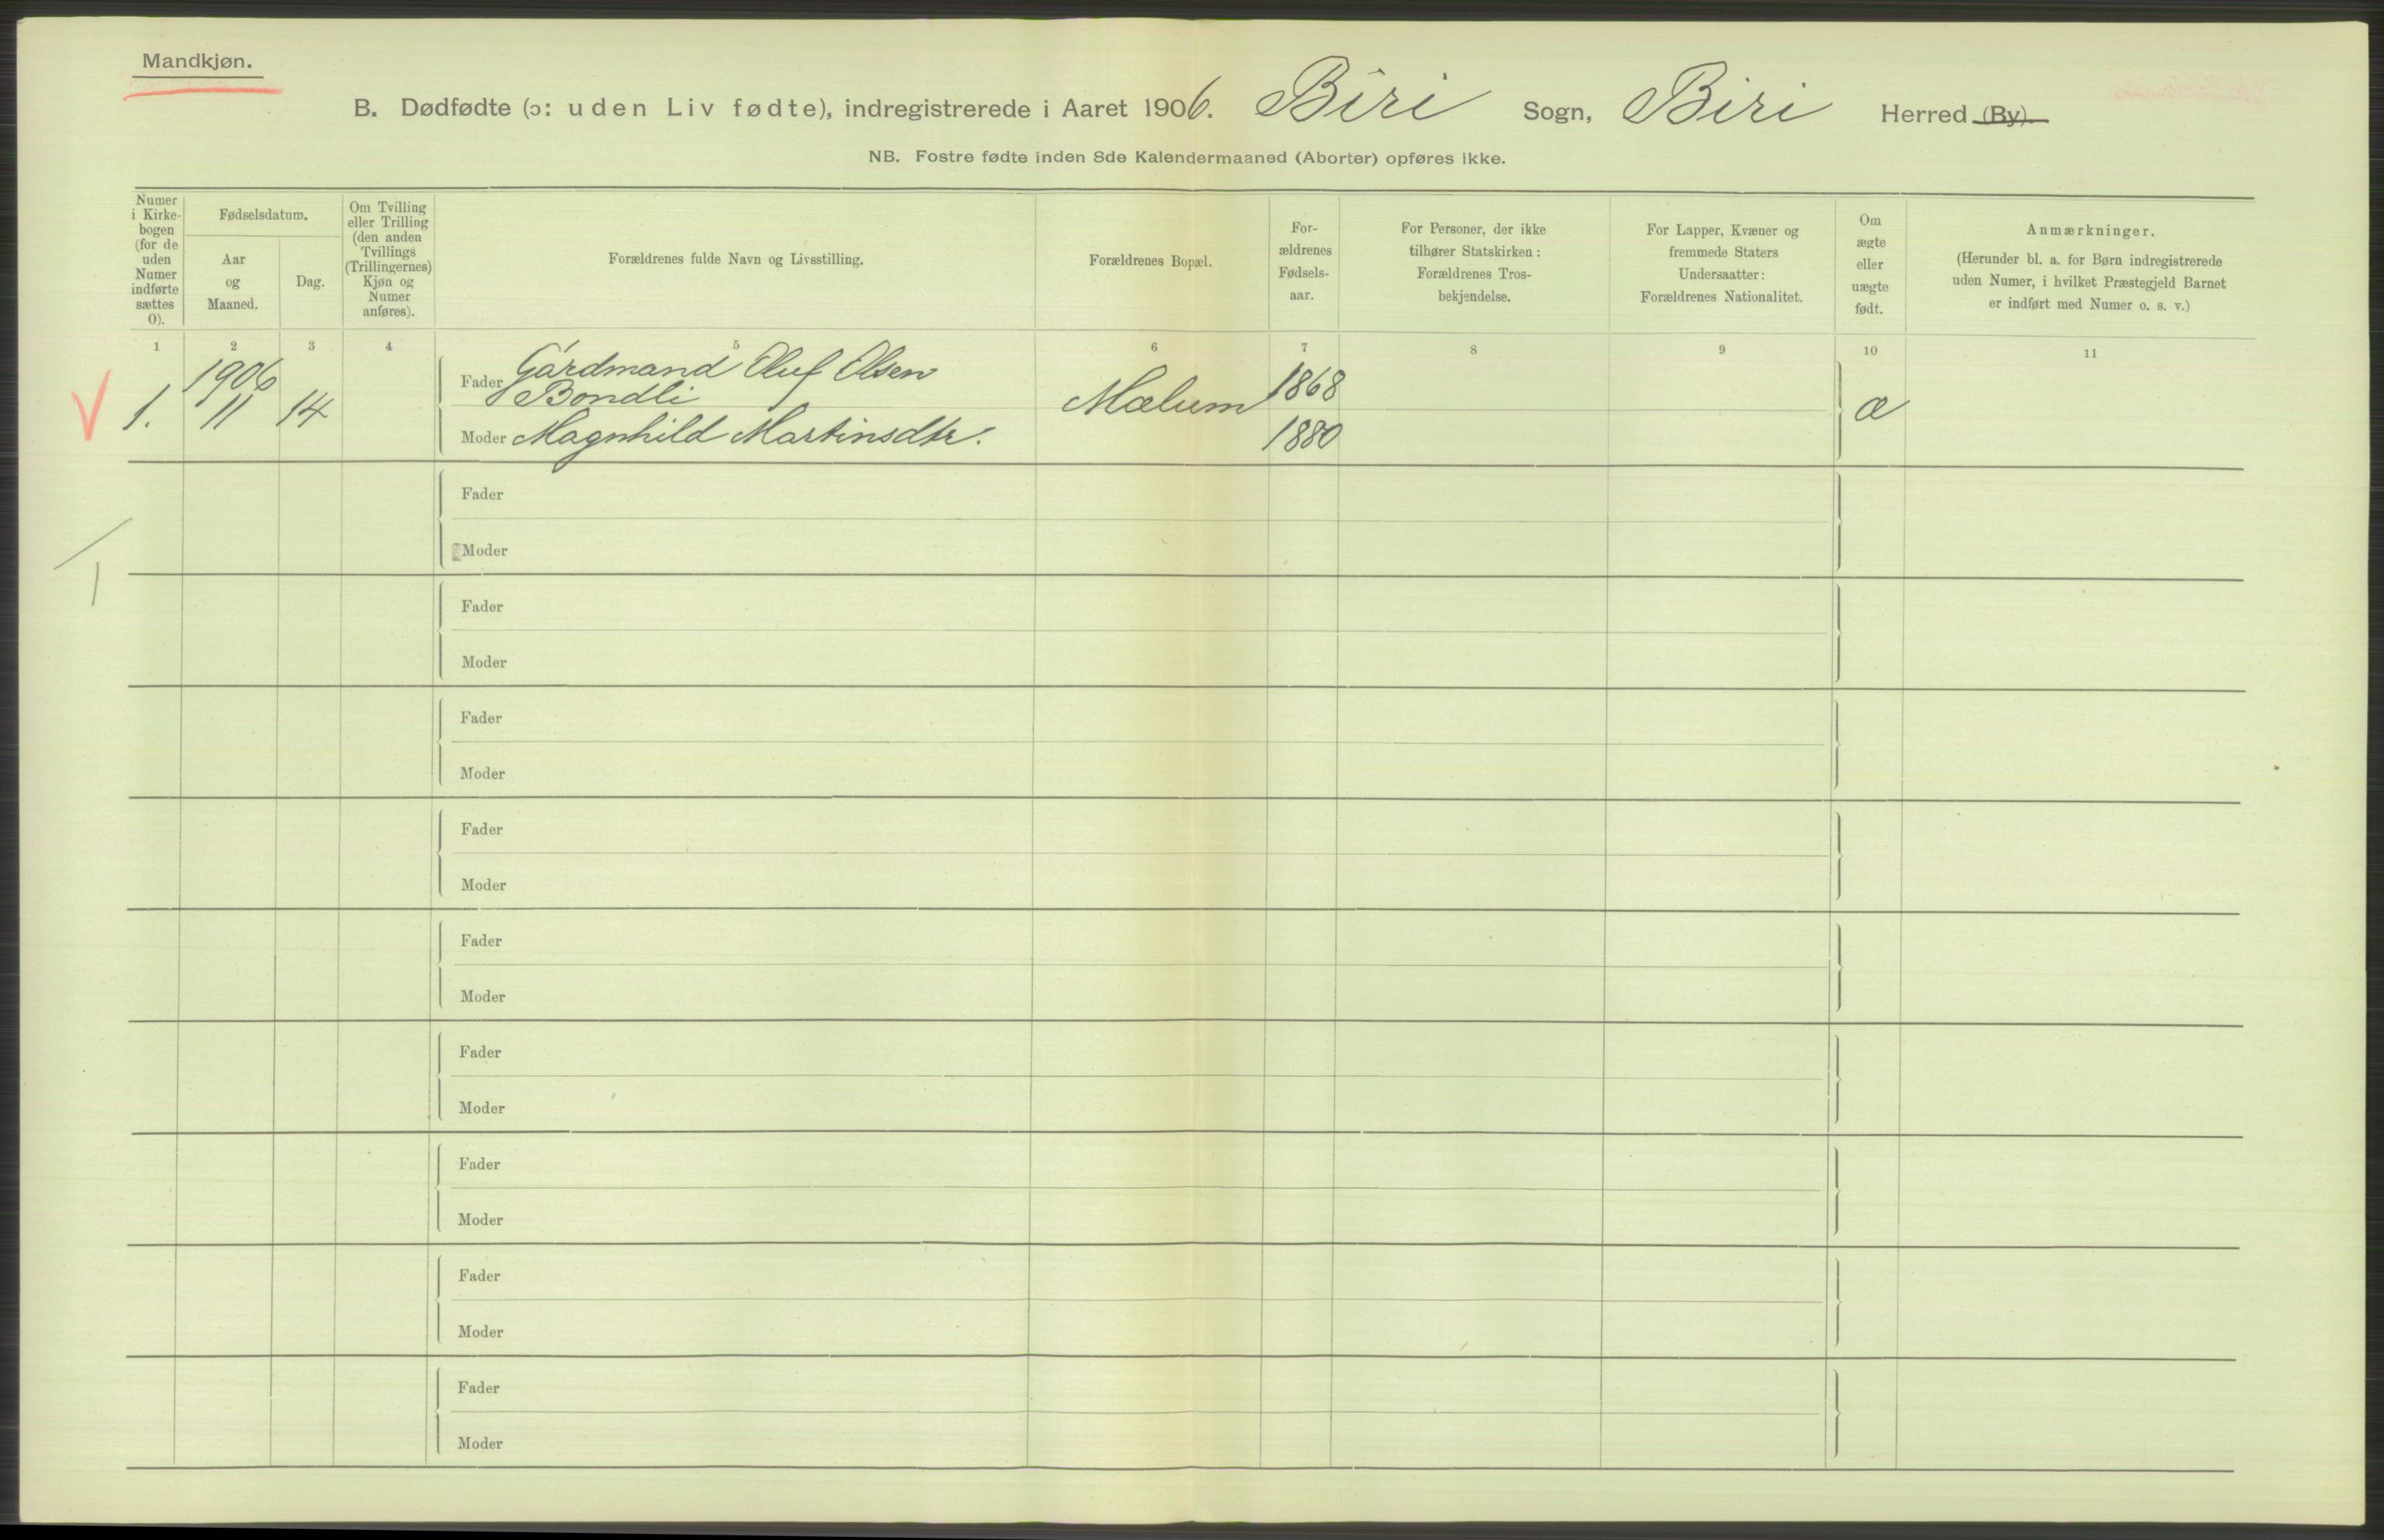 Mandkjøn.
B. Dødfødte (ɔ: uden Liv fødte), indregistrerede i Aaret 1906. Biri Sogn, Biri Herred (By).
NB. Fostre fødte inden 8de Kalendermaaned (Aborter) opføres ikke.
Numer
i Kirke-
bogen
(for de
uden
Numer
indførte
sættes
0).
Fødselsdatum.
Aar
og
Maaned.
Dag.
Om Tvilling
eller Trilling
(den anden
Tvillings
(Trillingernes)
Kjøn og
Numer
anføres).
Forældrenes fulde Navn og Livsstilling.
Forældrenes Bopæl.
For-
ældrenes
Fødsels-
aar.
For Personer, der ikke
tilhører Statskirken:
Forældrenes Tros-
bekjendelse.
For Lapper, Kvæner og
fremmede Staters
Undersaatter:
Forældrenes Nationalitet.
Om
ægte
eller
uægte
født.
Anmærkninger.
(Herunder bl. a. for Børn indregistrerede
uden Numer, i hvilket Præstegjeld Barnet
er indført med Numer o. s. v.)
1 2 3 4 5 6 7 8 9 10 11
1906
Fader Gårdmand Oluf Olsen
Bondli
1868
V 1. 11 14 Mælum æ
Moder Magnhild Martinsdtr. 1880
Fader
Moder
1
Fader
Moder
Fader
Moder
Fader
Moder
Fader
Moder
Fader
Moder
Fader
Moder
Fader
Moder
Fader
Moder